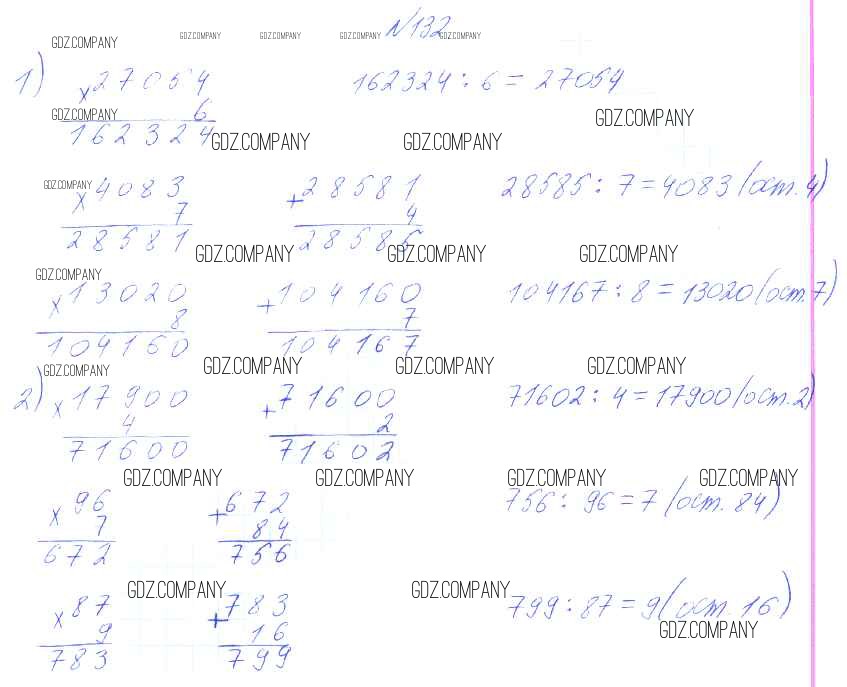 №132
GDZ.COMPANY GDZ.COMPANY GDZ.COMPANY GDZ.COMPANY GDZ.COMPANY
1) × 27054 162324 : 6 = 27054
GDZ.COMPANY 6 GDZ.COMPANY
162324 GDZ.COMPANY GDZ.COMPANY
GDZ.COMPANY × 4083 + 28581 28585 : 7 = 4083 (ост. 4)
7 4
28581 28585
GDZ.COMPANY GDZ.COMPANY GDZ.COMPANY
GDZ.COMPANY
× 13020 + 104160 104167 : 8 = 13020 (ост. 7)
8 7
104160 104167
GDZ.COMPANY GDZ.COMPANY GDZ.COMPANY GDZ.COMPANY
2) × 17900 + 71600 71602 : 4 = 17900 (ост. 2)
4 2
71600 71602
GDZ.COMPANY GDZ.COMPANY GDZ.COMPANY GDZ.COMPANY
× 96 + 672 756 : 96 = 7 (ост. 84)
7 84
672 756
GDZ.COMPANY GDZ.COMPANY
× 87 + 783 799 : 87 = 9 (ост. 16)
9 16 GDZ.COMPANY
783 799